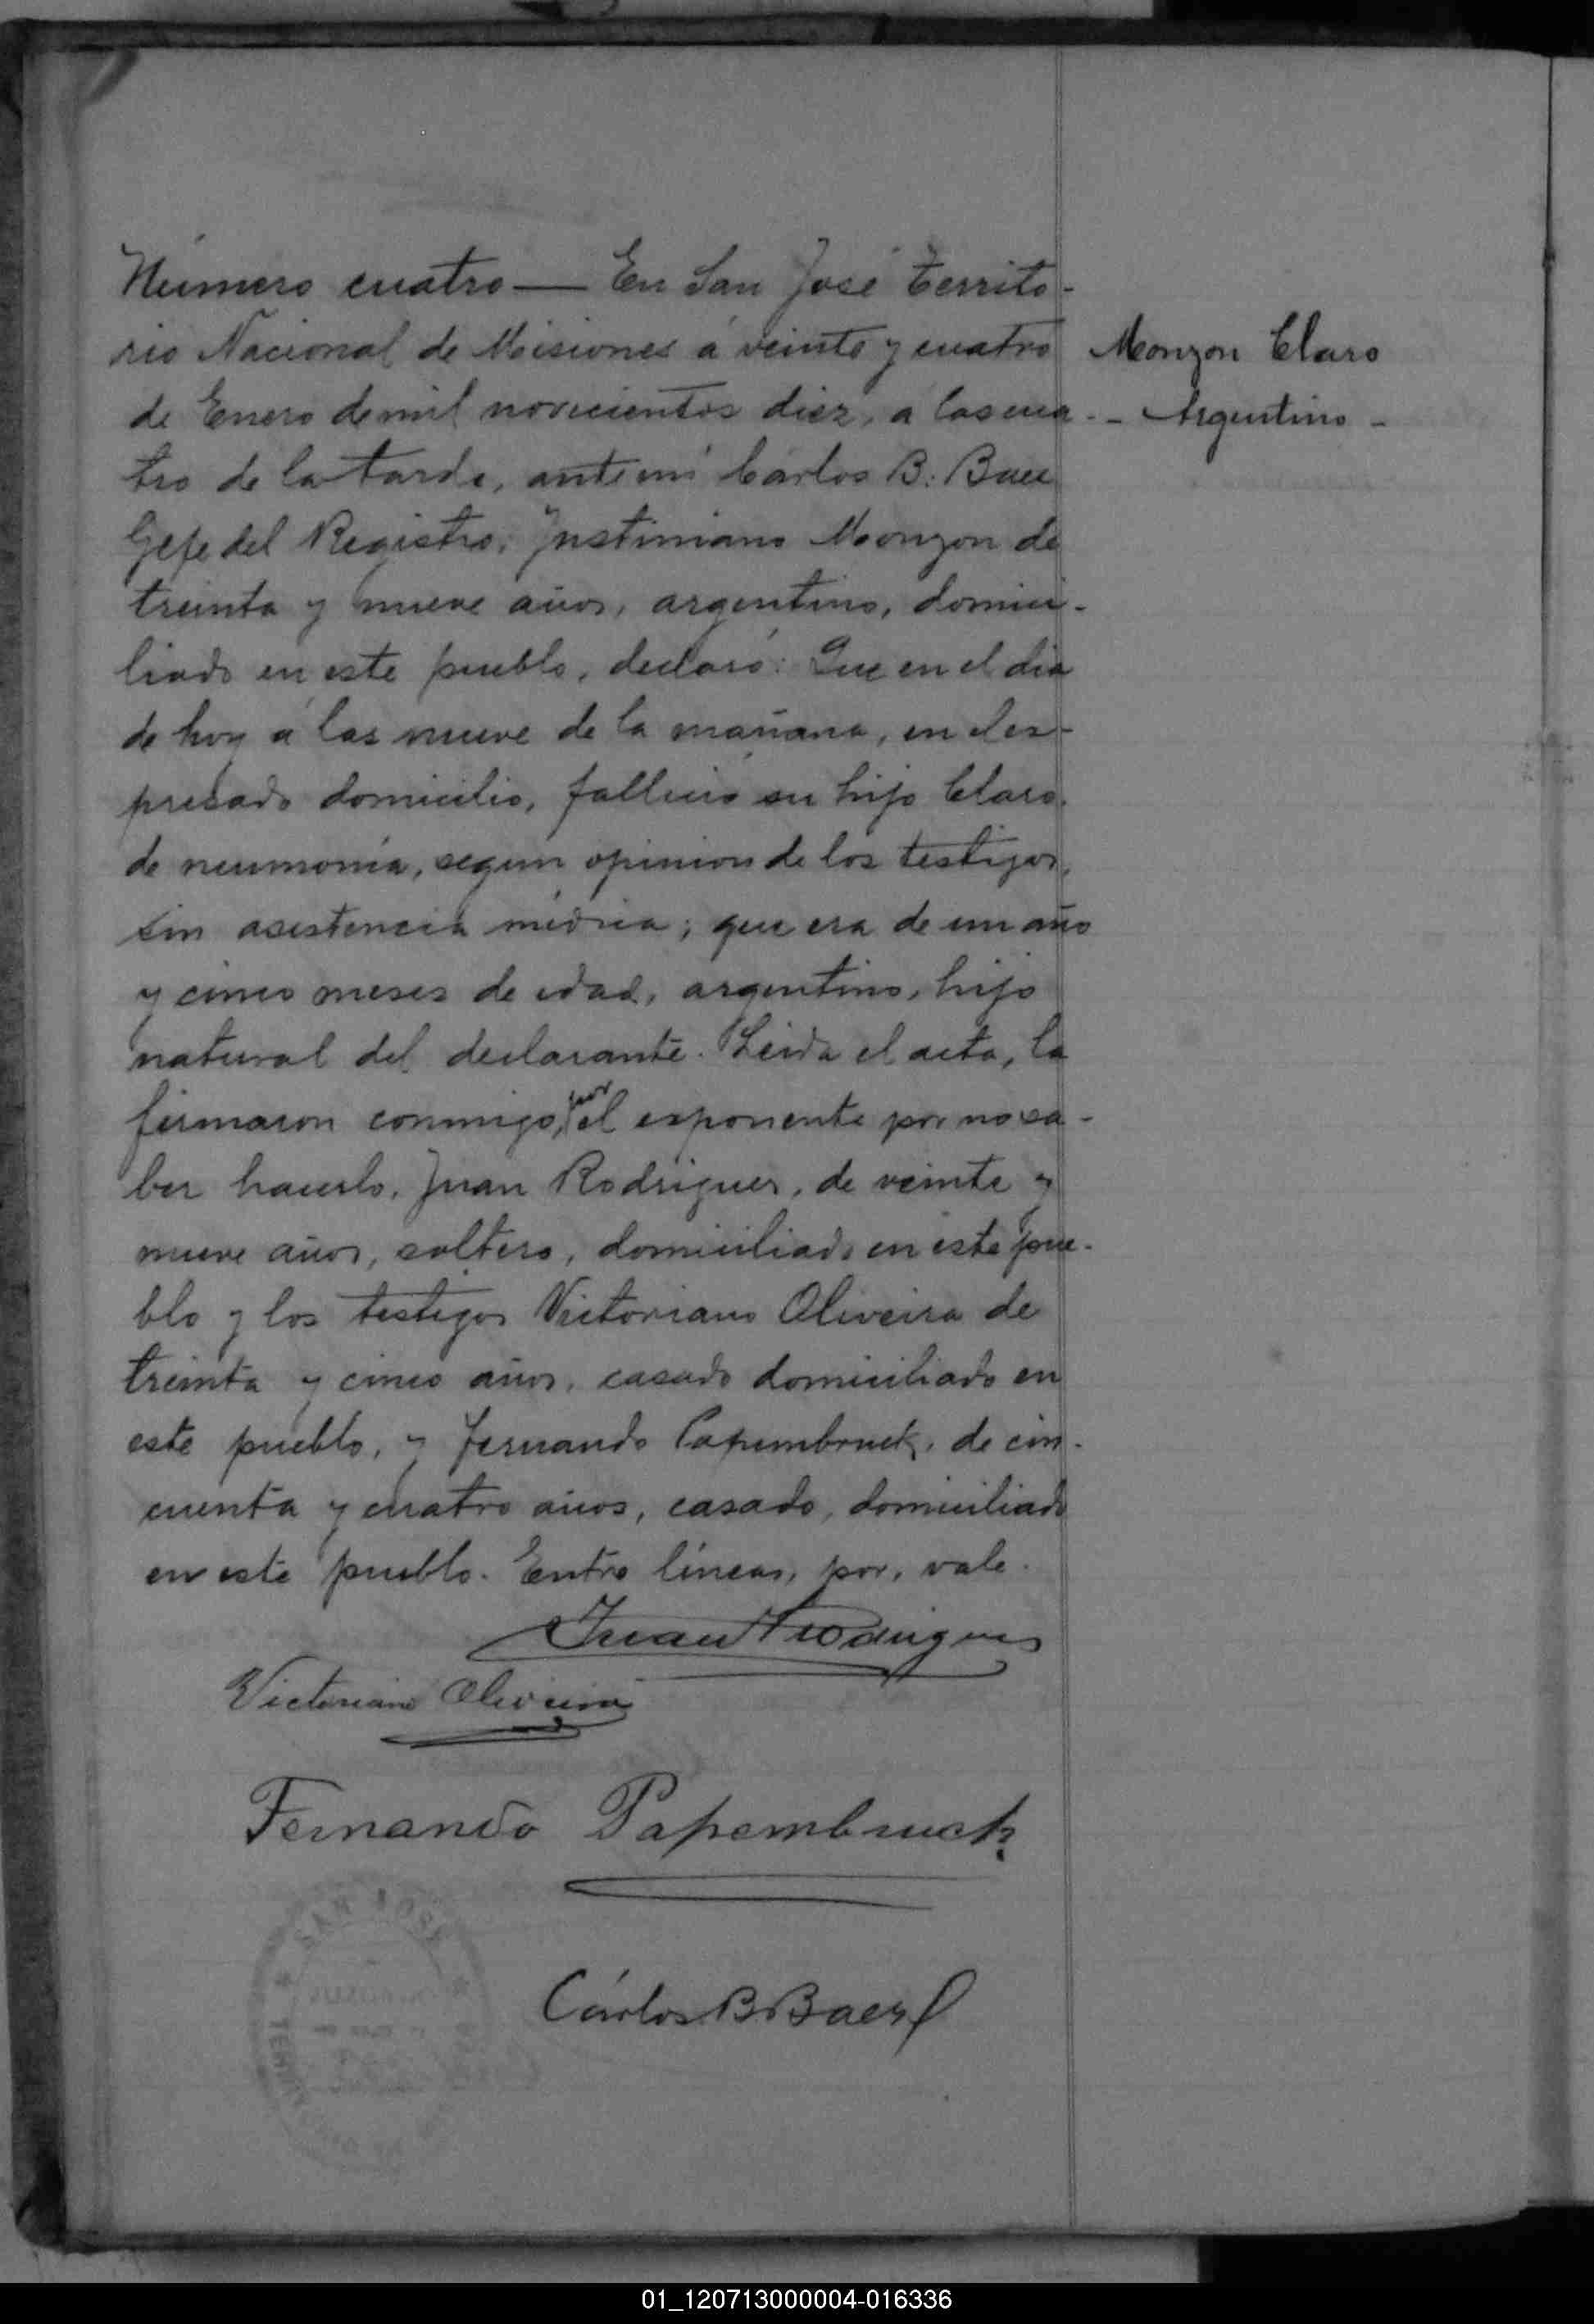 Número cuatro — En San José Territo-
rio Nacional de Misiones á veinte y cuatro
de Enero de mil novecientos diez, á las cua-
tro de la tarde, ante mi Cárlos B. Baez
Gefe del Registro, Justiniano Monzon de
treinta y nueve años, argentino, domici-
liado en este pueblo, declaró: Que en el dia
de hoy á las nueve de la mañana, en el es-
presado domicilio, falleció su hijo Claro,
de neumonía, segun opinion de los testigos,
sin asistencia médica; que era de un año
y cinco meses de edad, argentino, hijo
natural del declarante. Leida el acta, la
firmaron conmigo, por el exponente por no sa-
ber hacerlo, Juan Rodrigues, de veinte y
nueve años, soltero, domiciliado en este pue-
blo y los testigos Victoriano Oliveira de
treinta y cinco años, casado domiciliado en
este pueblo, y Fernando Papembruck, de cin-
cuenta y cuatro años, casado, domiciliado
en este pueblo. Entre líneas, por, vale.
Juan Rodrigues
Victoriano Oliveira
Fernando Papembruck
Cárlos B Baez
Monzon Claro
- Argentino -
SAN JOSE
01_120713000004-016336